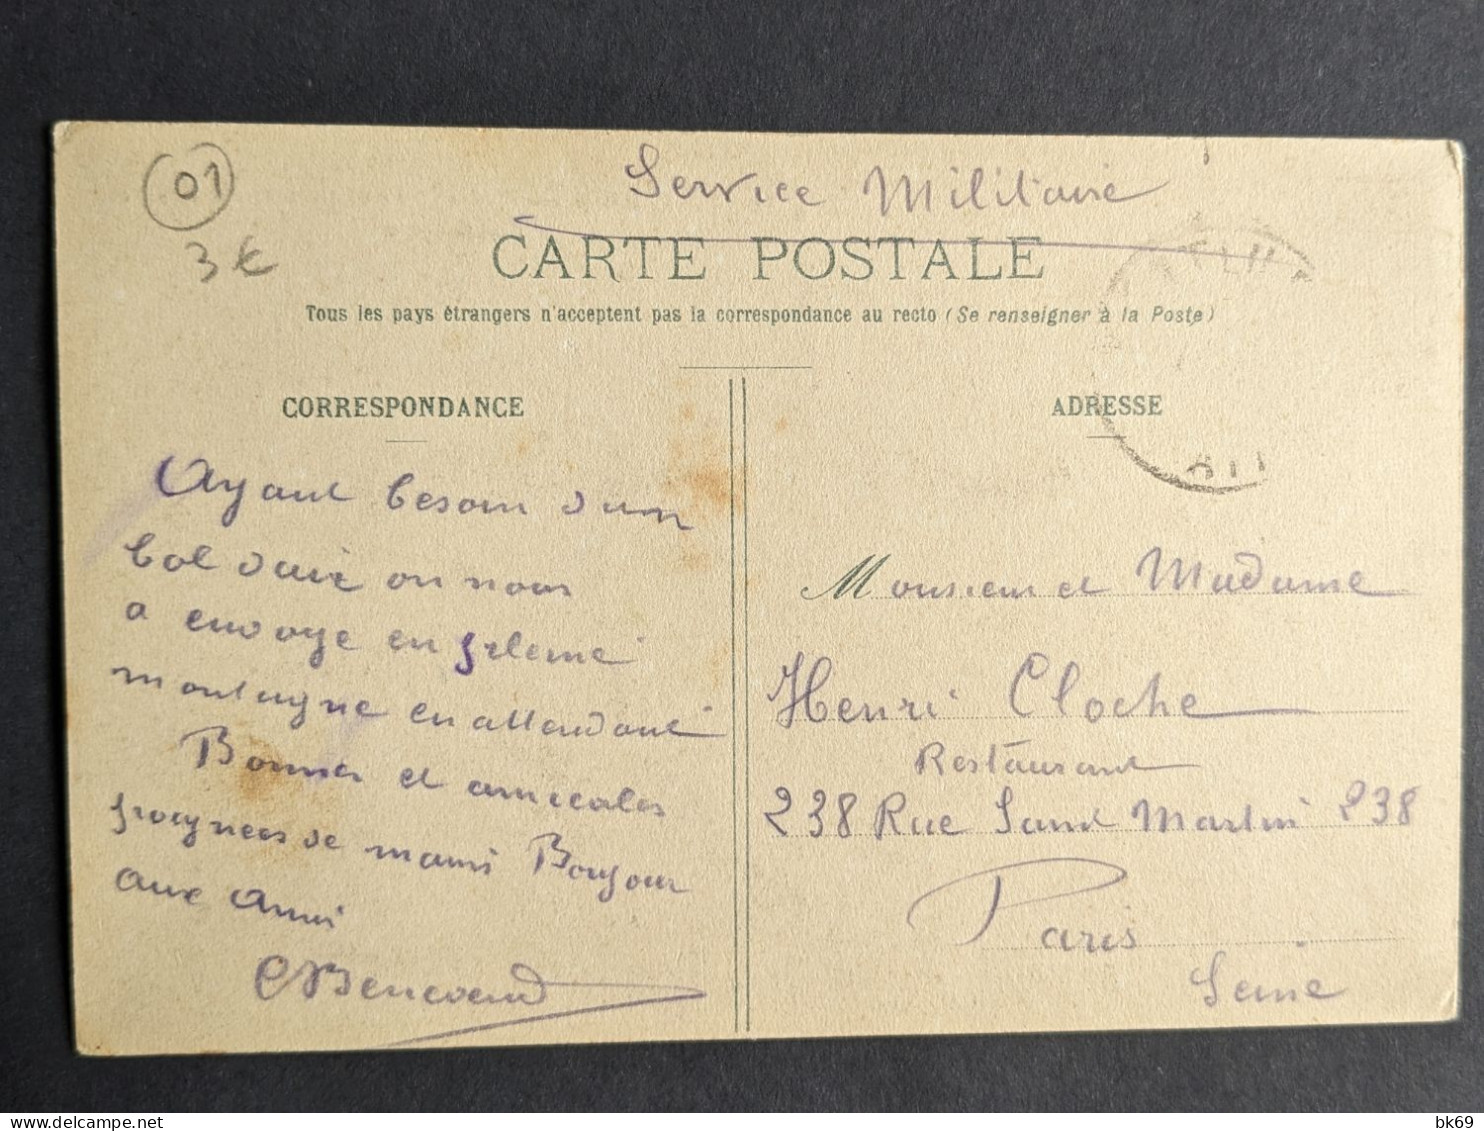 01
3€
Service Militaire
CARTE POSTALE
Tous les pays étrangers n'acceptent pas la correspondance au recto (Se renseigner à la Poste)
CORRESPONDANCE
ADRESSE
Ayant besoin d'un
bol d'air on nous
a envoye en pleine
montagne en attendant
Bonnes et amicales
poignees de mains Bonjour
aux amis
Monsieur et Madame
Henri Cloche
Restaurant
238 Rue Saint Martin 238
Paris
Seine
bk69